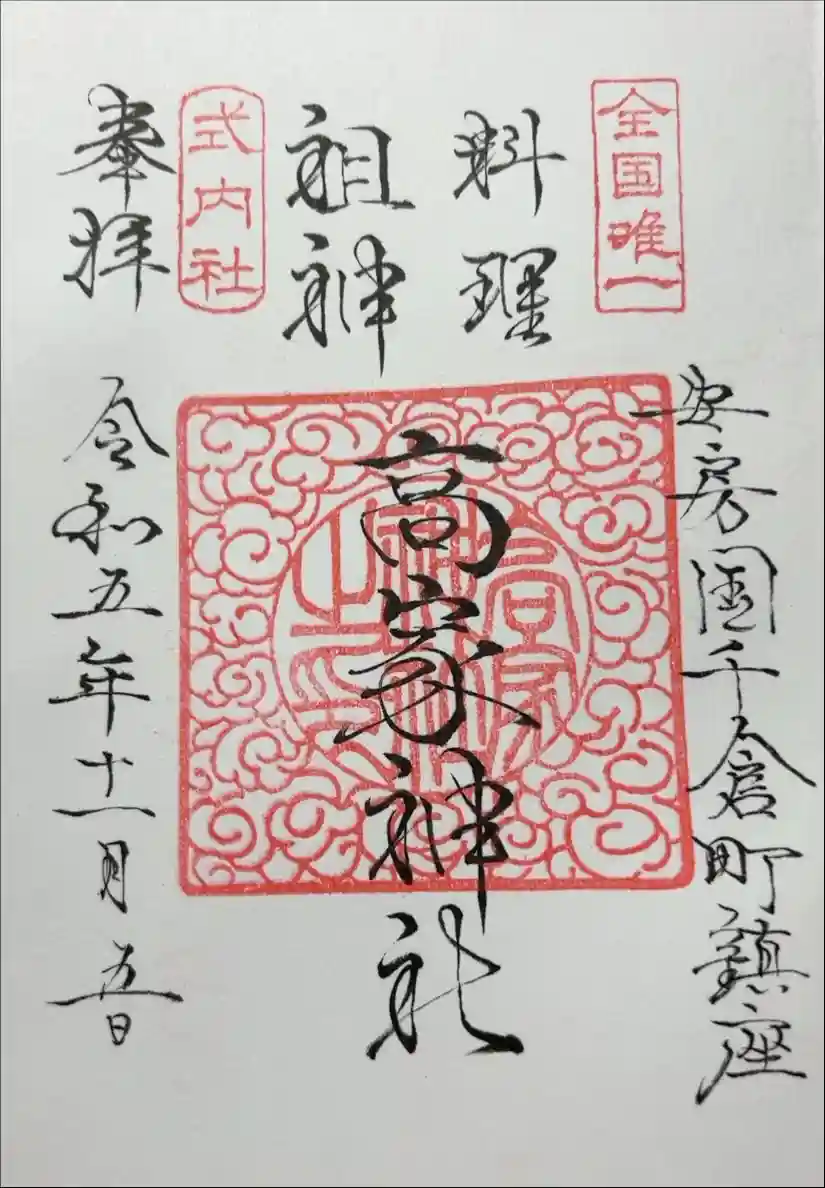 全国唯一
料理
祖神
式内社
奉拝
安房国千倉町鎮座
高家神社
令和五年十一月五日